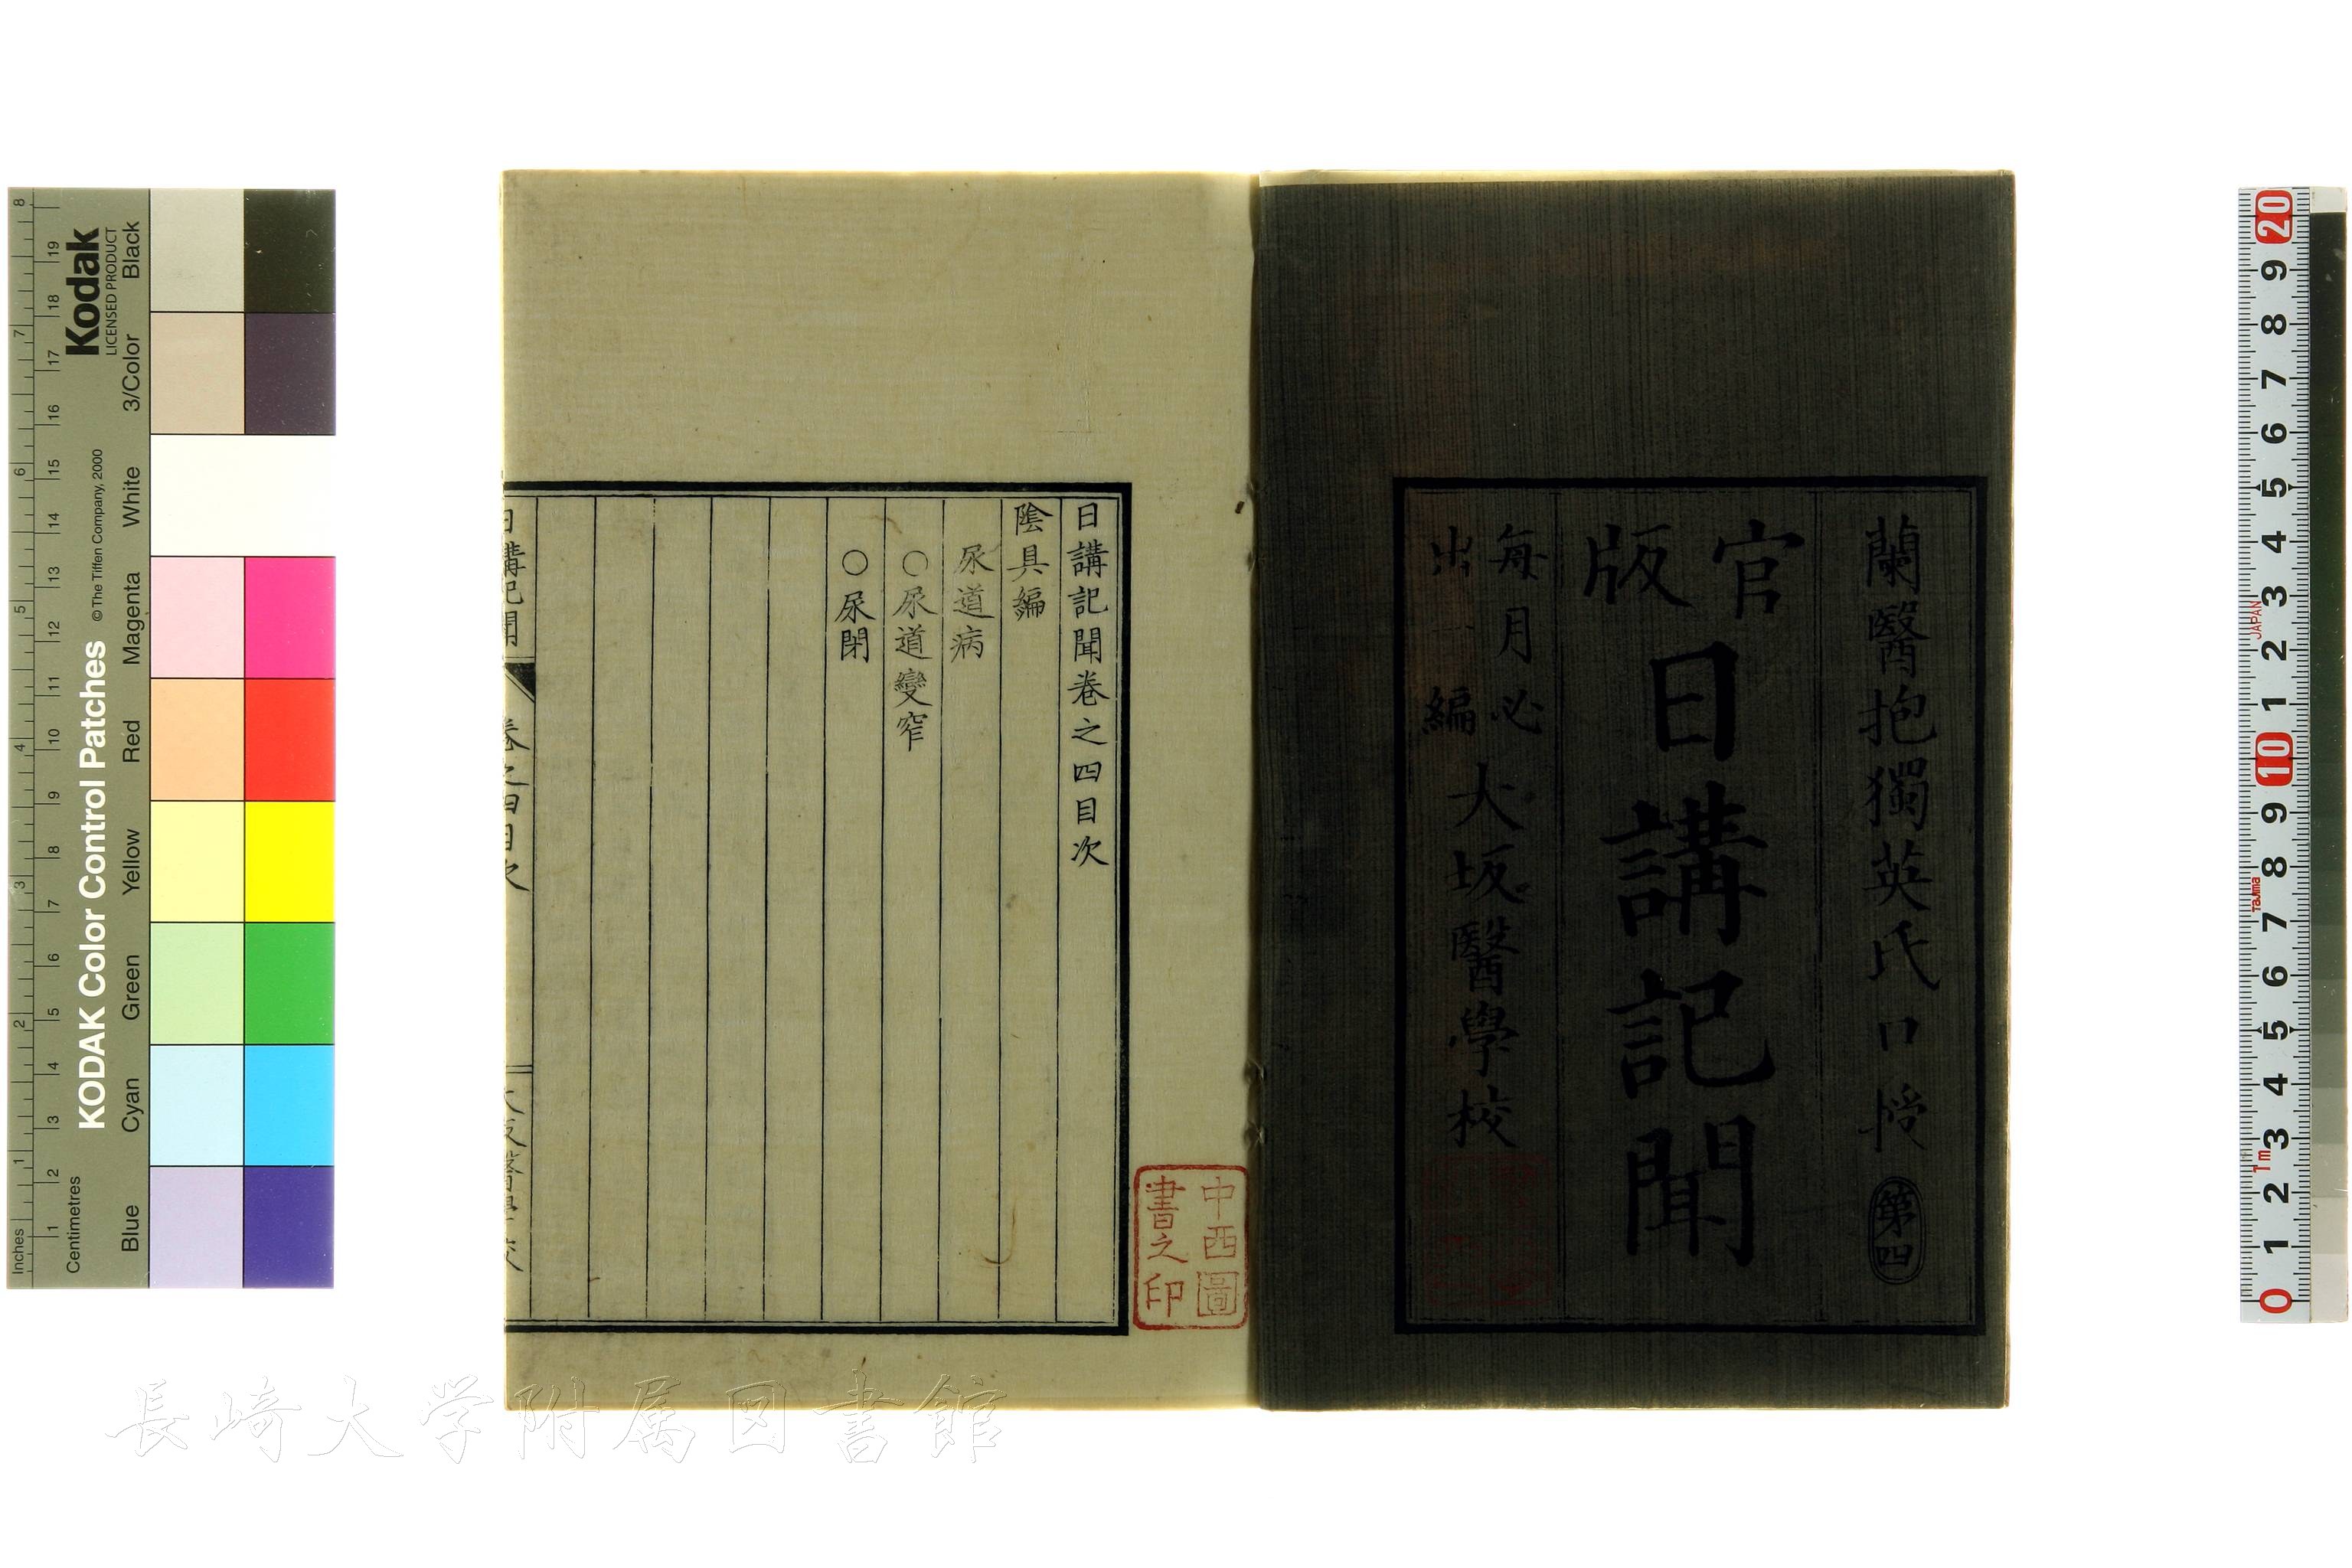 蘭醫抱獨英氏口授 第四
官版 日講記聞
每月必出一編 大坂醫學校
日講記聞卷之四目次
陰具編
尿道病
○尿道變窄
○尿閉
日講記聞 卷之四目次 大坂醫學校
中西圖書之印
長崎大学附属図書館
Kodak
LICENSED PRODUCT
KODAK Color Control Patches
©The Tiffen Company, 2000
Inches 1 2 3 4 5 6 7 8
Centimetres 1 2 3 4 5 6 7 8 9 10 11 12 13 14 15 16 17 18 19
Blue Cyan Green Yellow Red Magenta White 3/Color Black
0 1 2 3 4 5 6 7 8 9 10 1 2 3 4 5 6 7 8 9 20
1m Tajima JAPAN